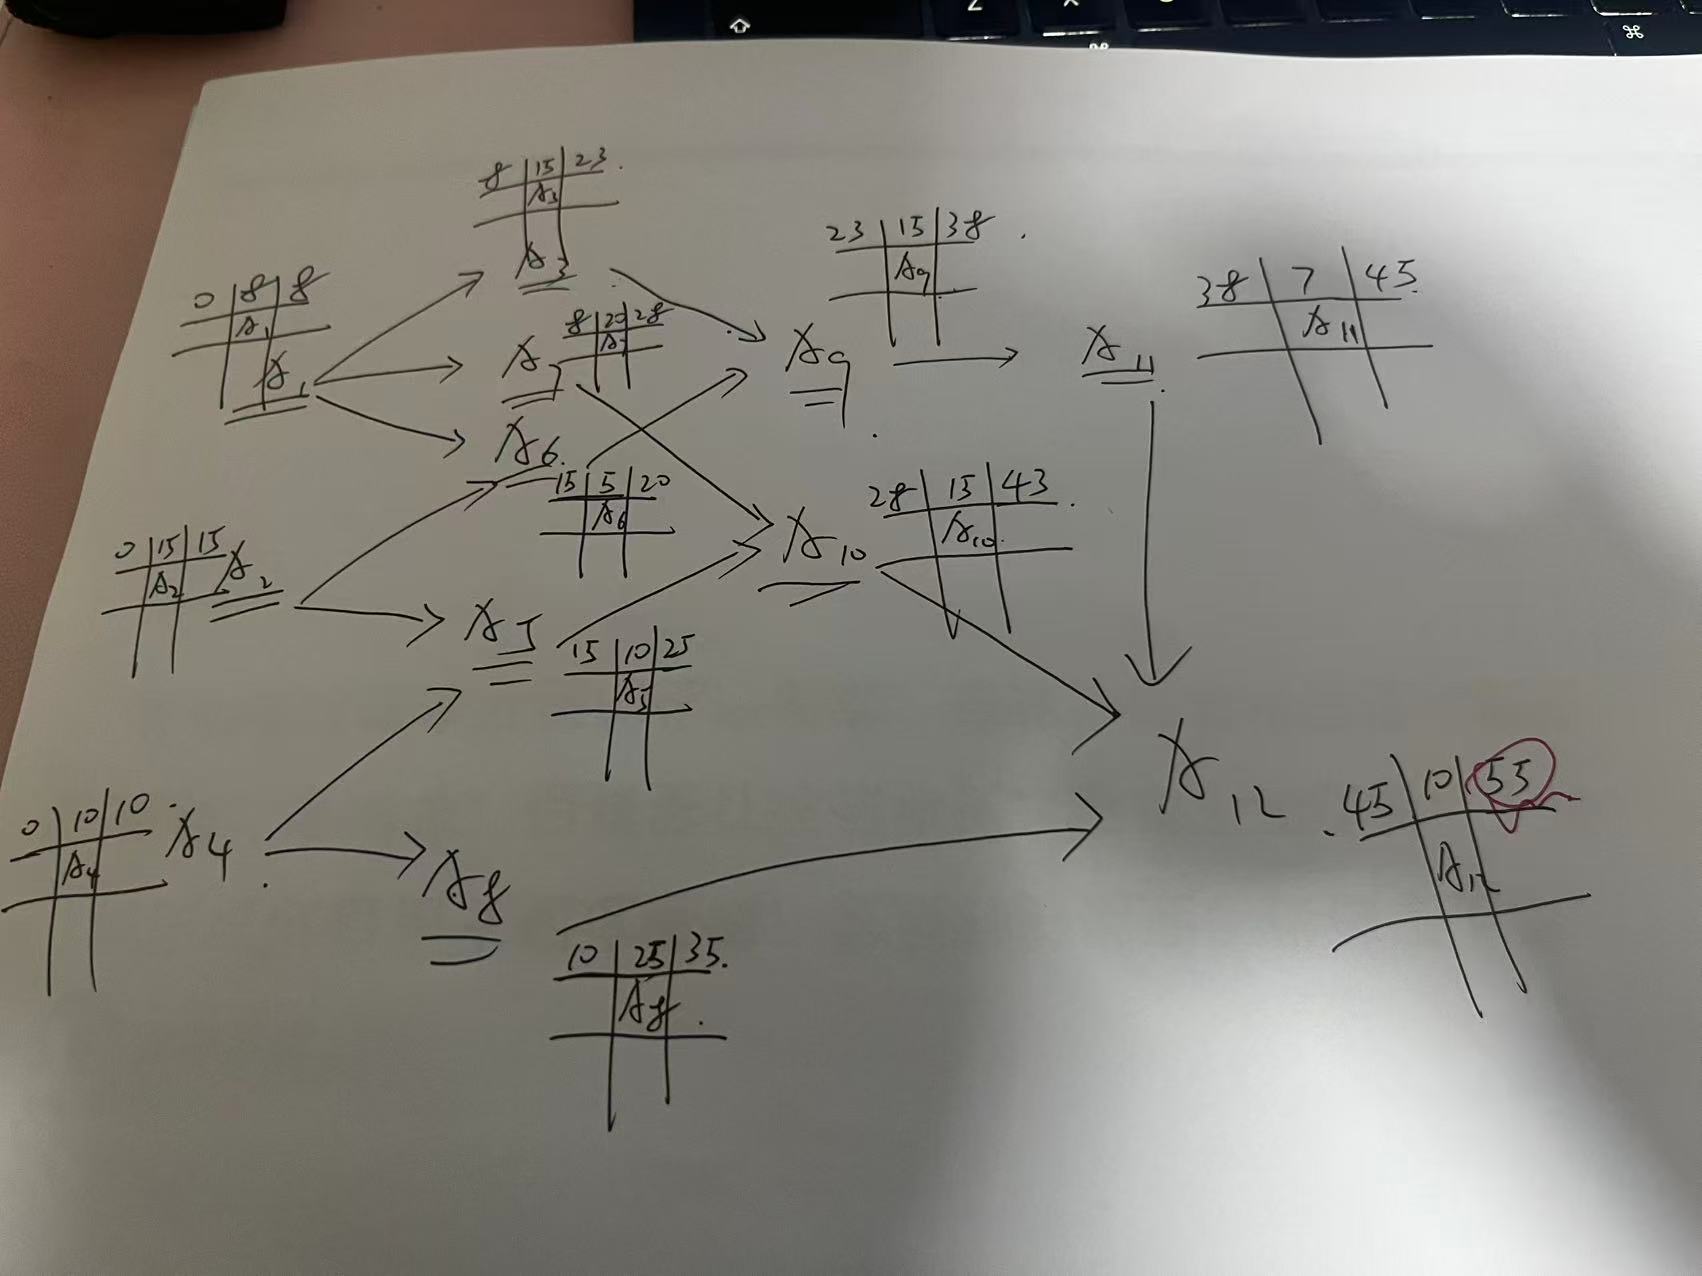 8 | 15 | 23.
A3
A3
23 | 15 | 38.
A9
0 | 8 | 8
A1
A1
38 | 7 | 45.
A11
8 | 20 | 28
A7
A7
A9
A11
A6
15 | 5 | 20
A6
28 | 15 | 43.
A10
A10
0 | 15 | 15
A2
A2
A5
15 | 10 | 25
A5
A12
45 | 10 | 55
A12
0 | 10 | 10
A4
A4
A8
10 | 25 | 35.
A8
⌘